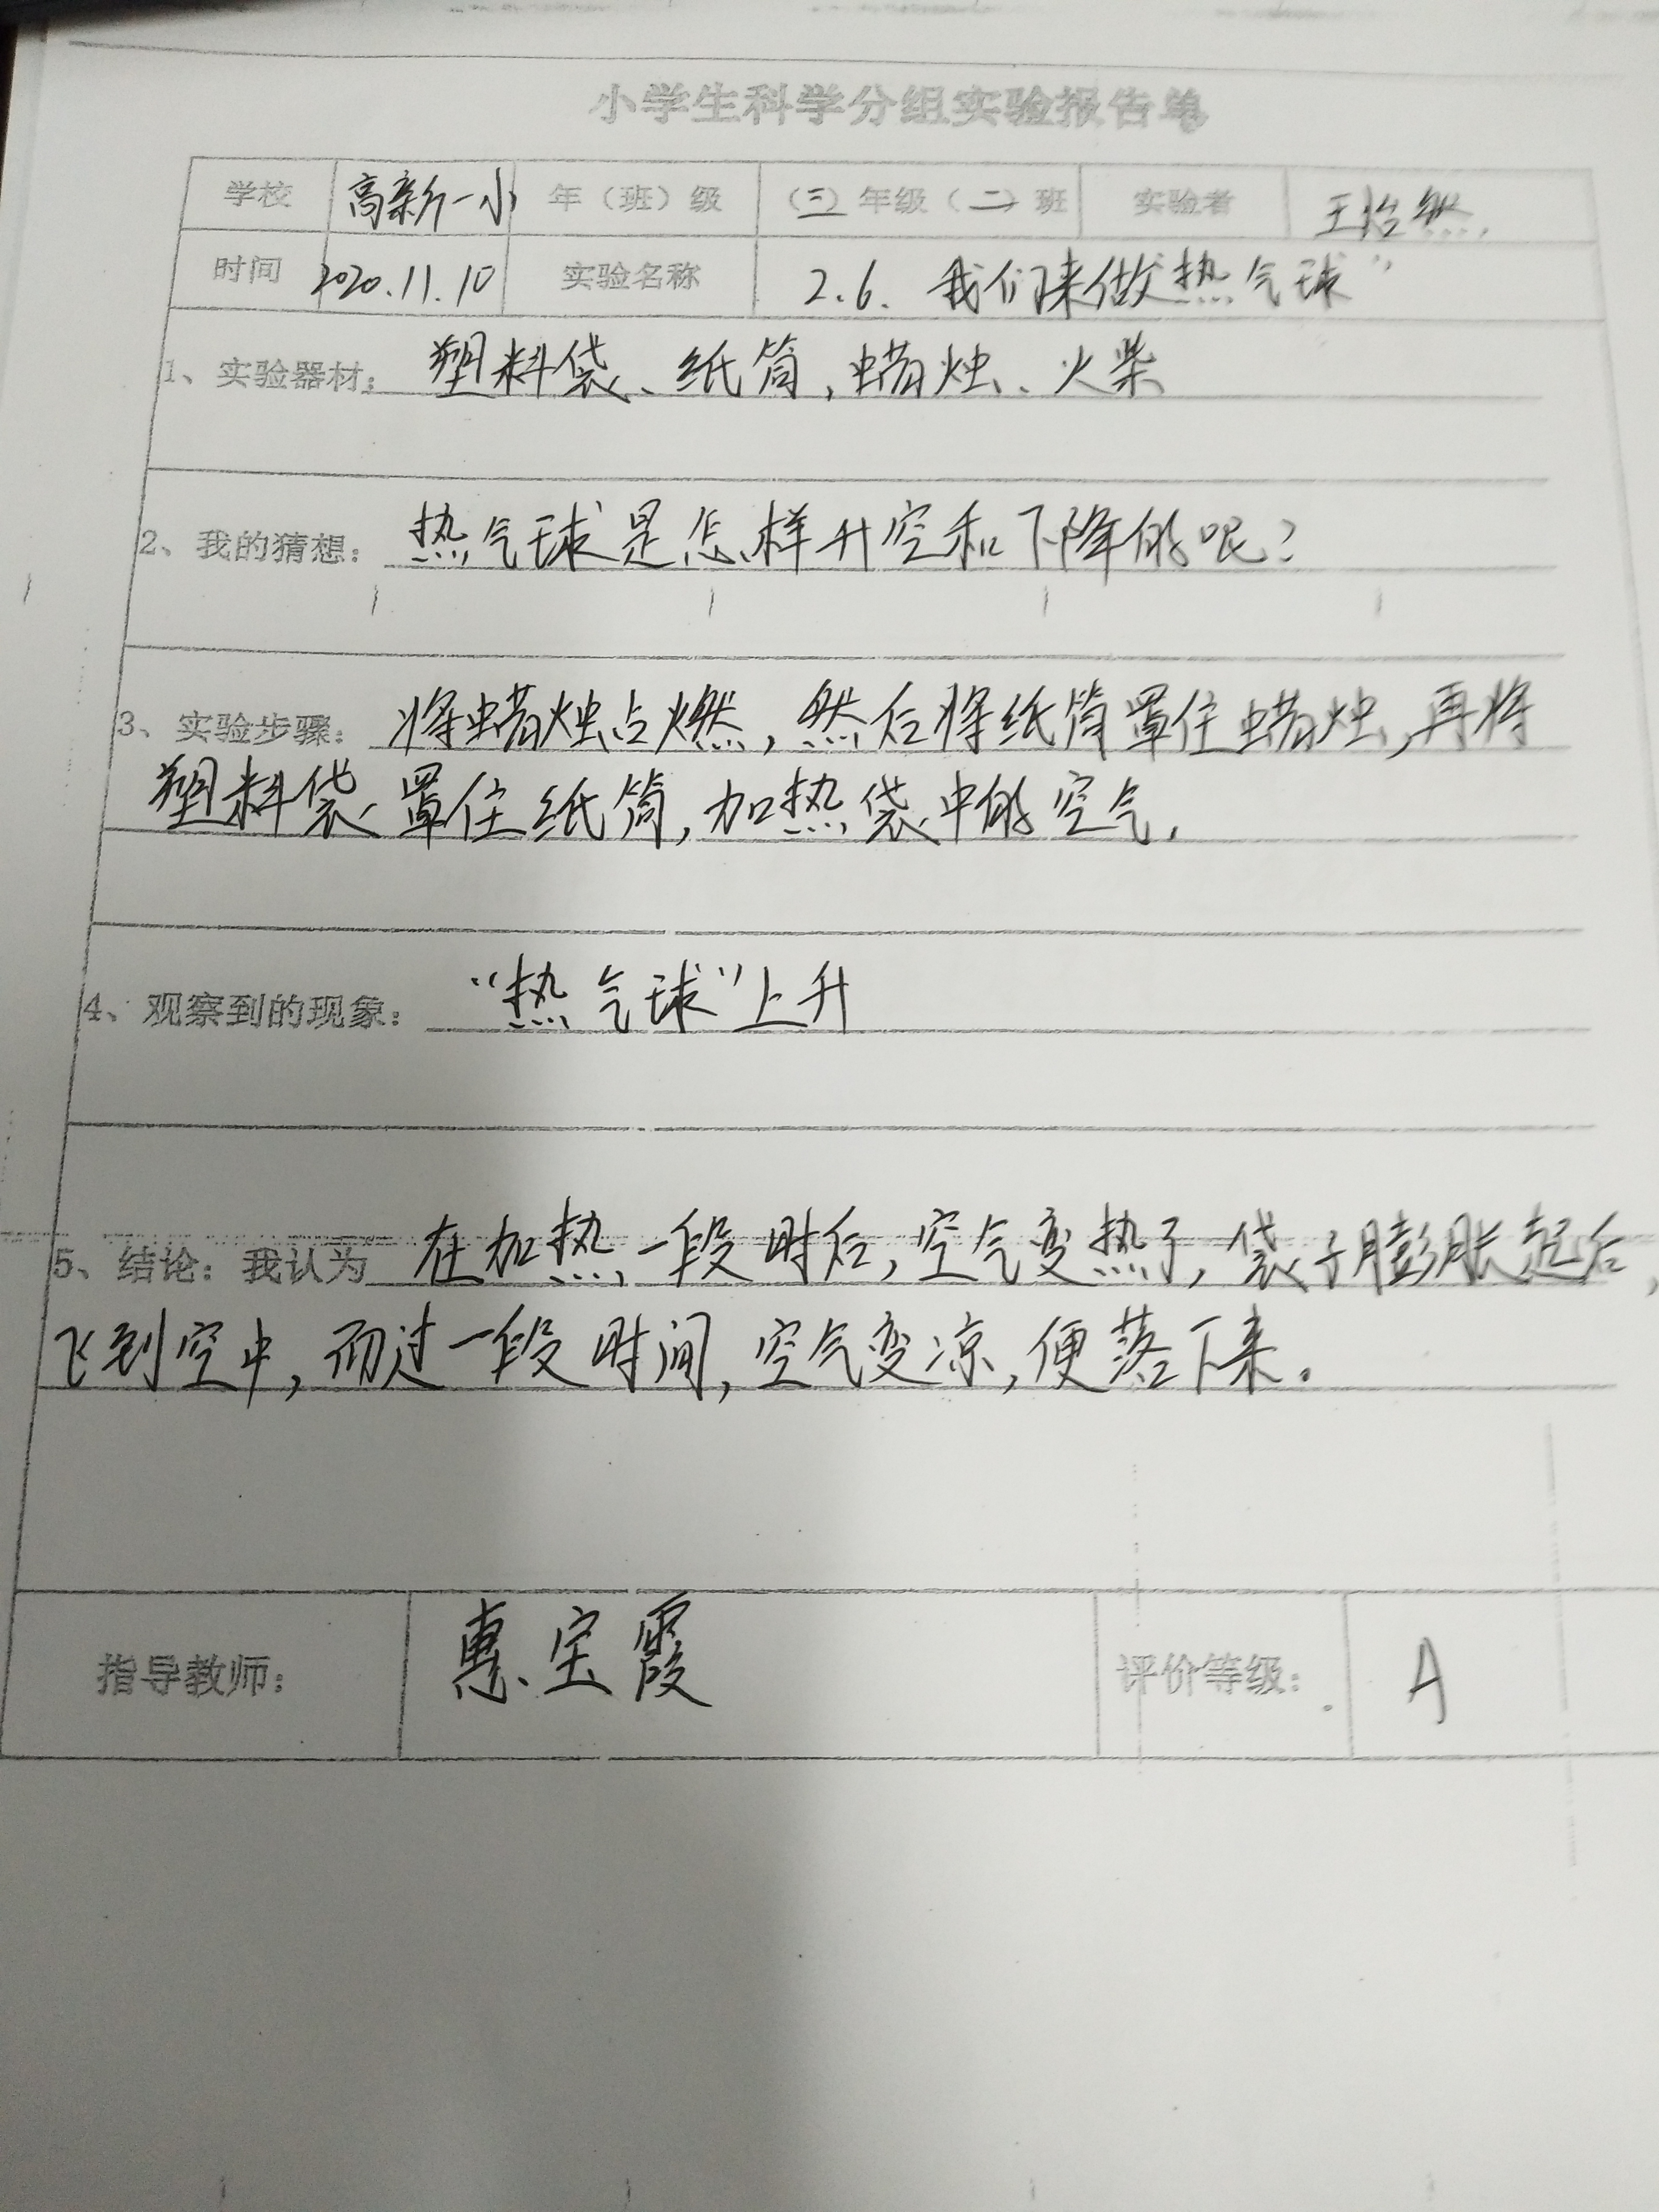 小学生科学分组实验报告单
学校 高新一小 年（班）级 （三）年级（二）班 实验者 王怡然
时间 2020.11.10 实验名称 2.6. 我们来做热气球”
1、实验器材：塑料袋、纸筒，蜡烛、火柴
2、我的猜想：热气球是怎样升空和下降的呢？
3、实验步骤：将蜡烛点燃，然后将纸筒罩住蜡烛，再将
塑料袋罩住纸筒，加热袋中的空气，
4、观察到的现象：“热气球”上升
5、结论：我认为 在加热一段时后，空气变热了，袋子膨胀起后，
飞到空中，而过一段时间，空气变凉，便落下来。
指导教师：惠宝霞 评价等级：A